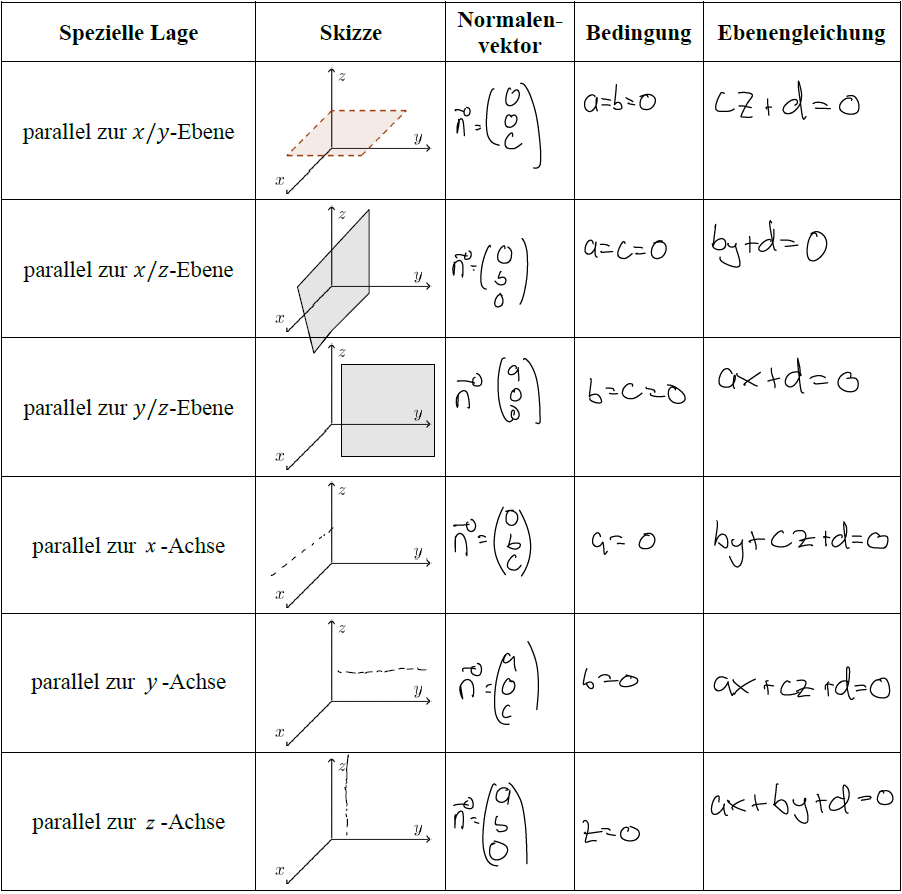 Spezielle Lage Skizze Normalen-vektor Bedingung Ebenengleichung
parallel zur x/y-Ebene
z
y
x
n⃗ = (0 0 c)
a=b=0
cz + d = 0
parallel zur x/z-Ebene
z
y
x
n⃗ = (0 b 0)
a=c=0
by+d=0
parallel zur y/z-Ebene
z
y
x
n⃗ (a 0 0)
b=c=0
ax+d=0
parallel zur x -Achse
z
y
x
n⃗ = (0 b c)
a=0
by+cz+d=0
parallel zur y -Achse
z
y
x
n⃗ = (a 0 c)
b=0
ax+cz+d=0
parallel zur z -Achse
z
y
x
n⃗ = (a b 0)
z=0
ax+by+d=0